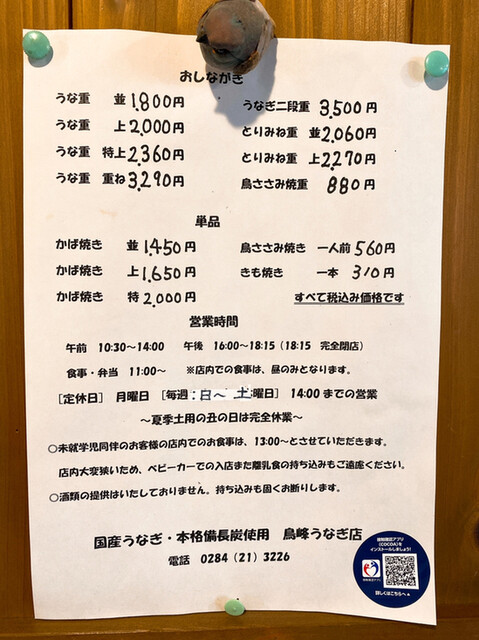 おしながき
うな重 並 1,800円
うな重 上 2,000円
うな重 特上 2,360円
うな重 重ね 3,290円
うなぎ二段重 3,500円
とりみね重 並 2,060円
とりみね重 上 2,270円
鳥ささみ焼重 880円
単品
かば焼き 並 1,450円
かば焼き 上 1,650円
かば焼き 特 2,000円
鳥ささみ焼き 一人前 560円
きも焼き 一本 310円
すべて税込み価格です
営業時間
午前 10:30～14:00 午後 16:00～18:15（18:15 完全閉店）
食事・弁当 11:00～ ※店内での食事は、昼のみとなります。
[定休日] 月曜日 [毎週:日～ 土曜日] 14:00までの営業
～夏季土用の丑の日は完全休業～
○未就学児同伴のお客様の店内でのお食事は、13:00～とさせていただきます。
店内大変狭いため、ベビーカーでの入店また離乳食の持ち込みもご遠慮ください。
○酒類の提供はいたしておりません。持ち込みも固くお断りします。
国産うなぎ・本格備長炭使用 鳥峰うなぎ店
電話 0284（21）3226
接触確認アプリ
(COCOA)を
インストールしましょう!
詳しくはこちらへ